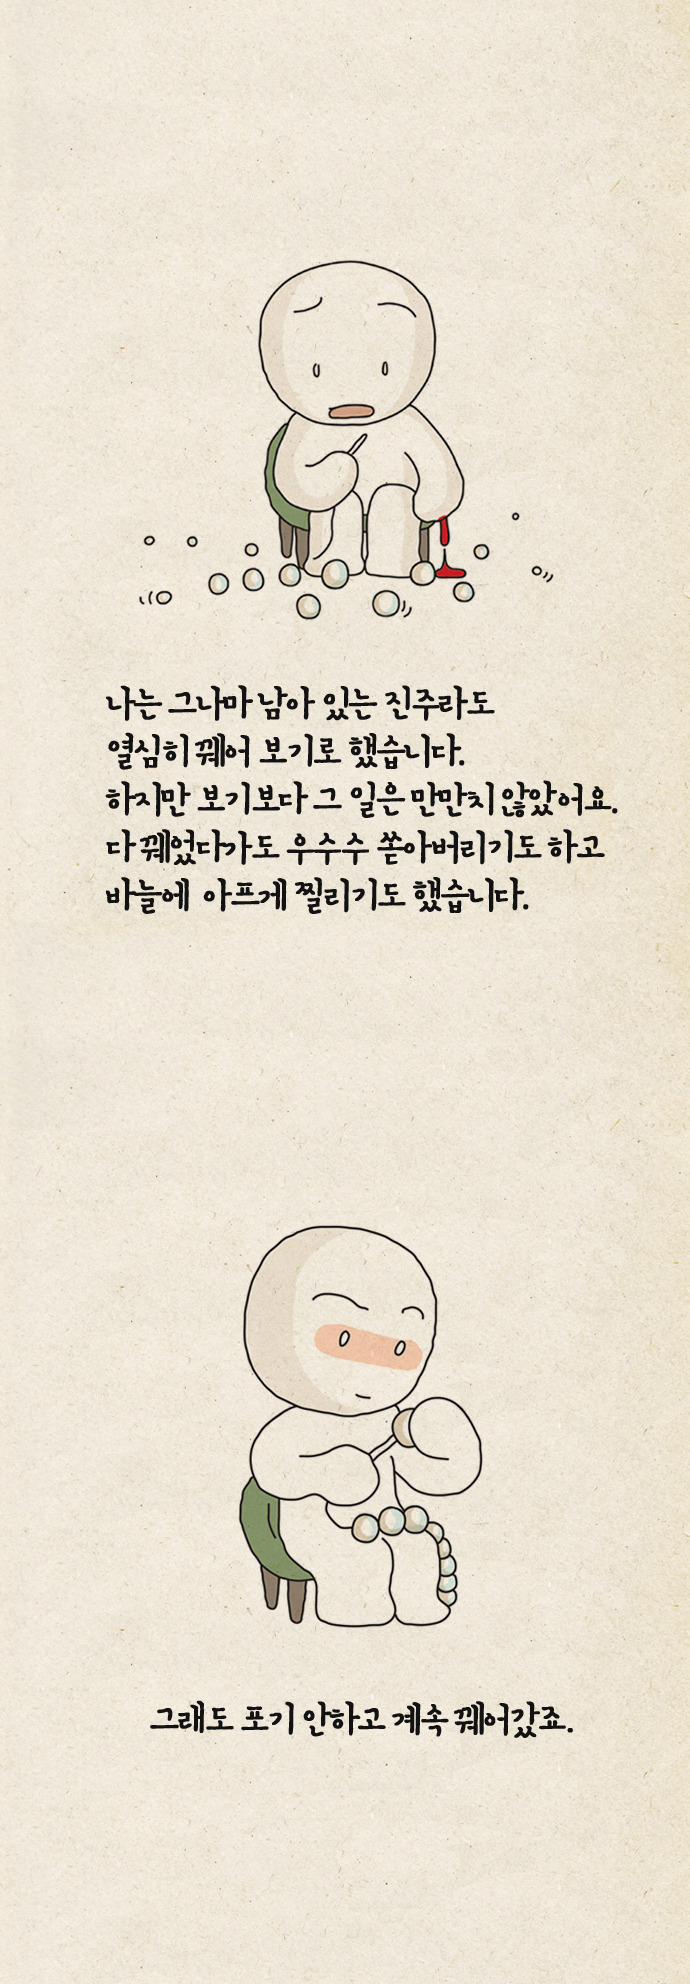 나는 그나마 남아 있는 진주라도
열심히 꿰어 보기로 했습니다.
하지만 보기보다 그 일은 만만치 않았어요.
다 꿰었다가도 우수수 쏟아버리기도 하고
바늘에 아프게 찔리기도 했습니다.
그래도 포기 안하고 계속 꿰어갔죠.